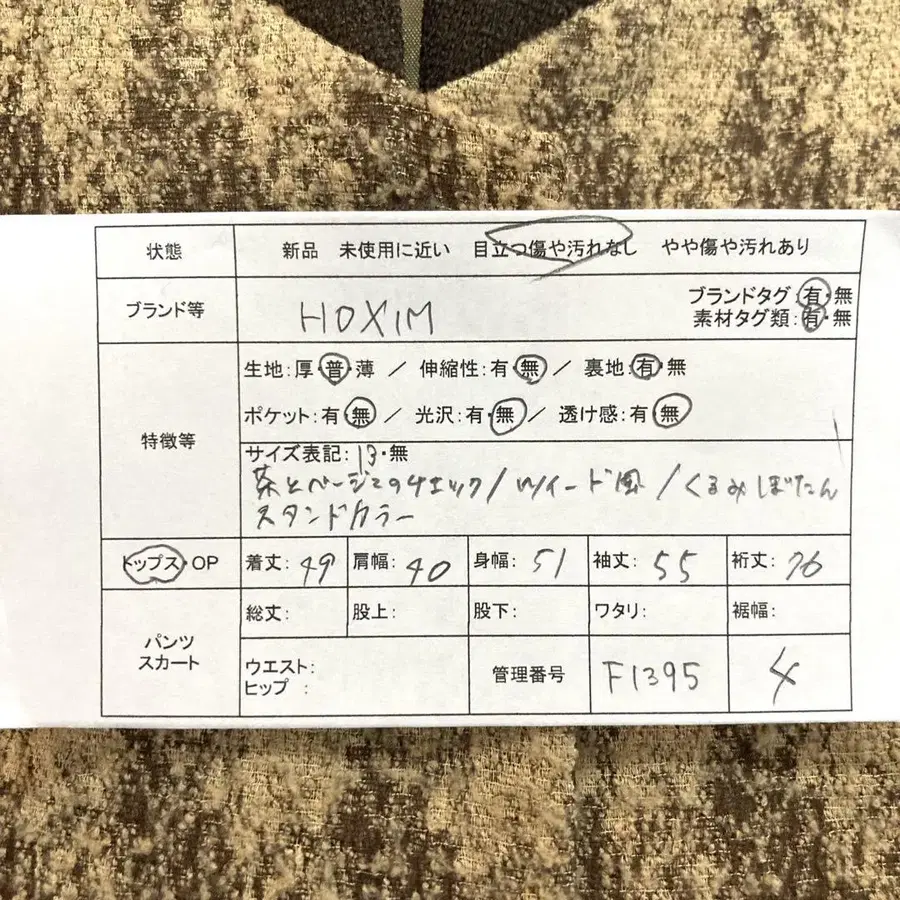 状態 新品 未使用に近い 目立つ傷や汚れなし やや傷や汚れあり
ブランド等 HOXIM ブランドタグ:有・無
素材タグ類:有・無
特徴等
生地:厚・普・薄 / 伸縮性:有・無 / 裏地:有・無
ポケット:有・無 / 光沢:有・無 / 透け感:有・無
サイズ表記:13・無
茶とベージュのチェック/ツイード風/くるみぼたん
スタンドカラー
トップス・OP 着丈:49 肩幅:40 身幅:51 袖丈:55 裄丈:76
パンツ
スカート
総丈: 股上: 股下: ワタリ: 裾幅:
ウエスト:
ヒップ :
管理番号 F1395 4